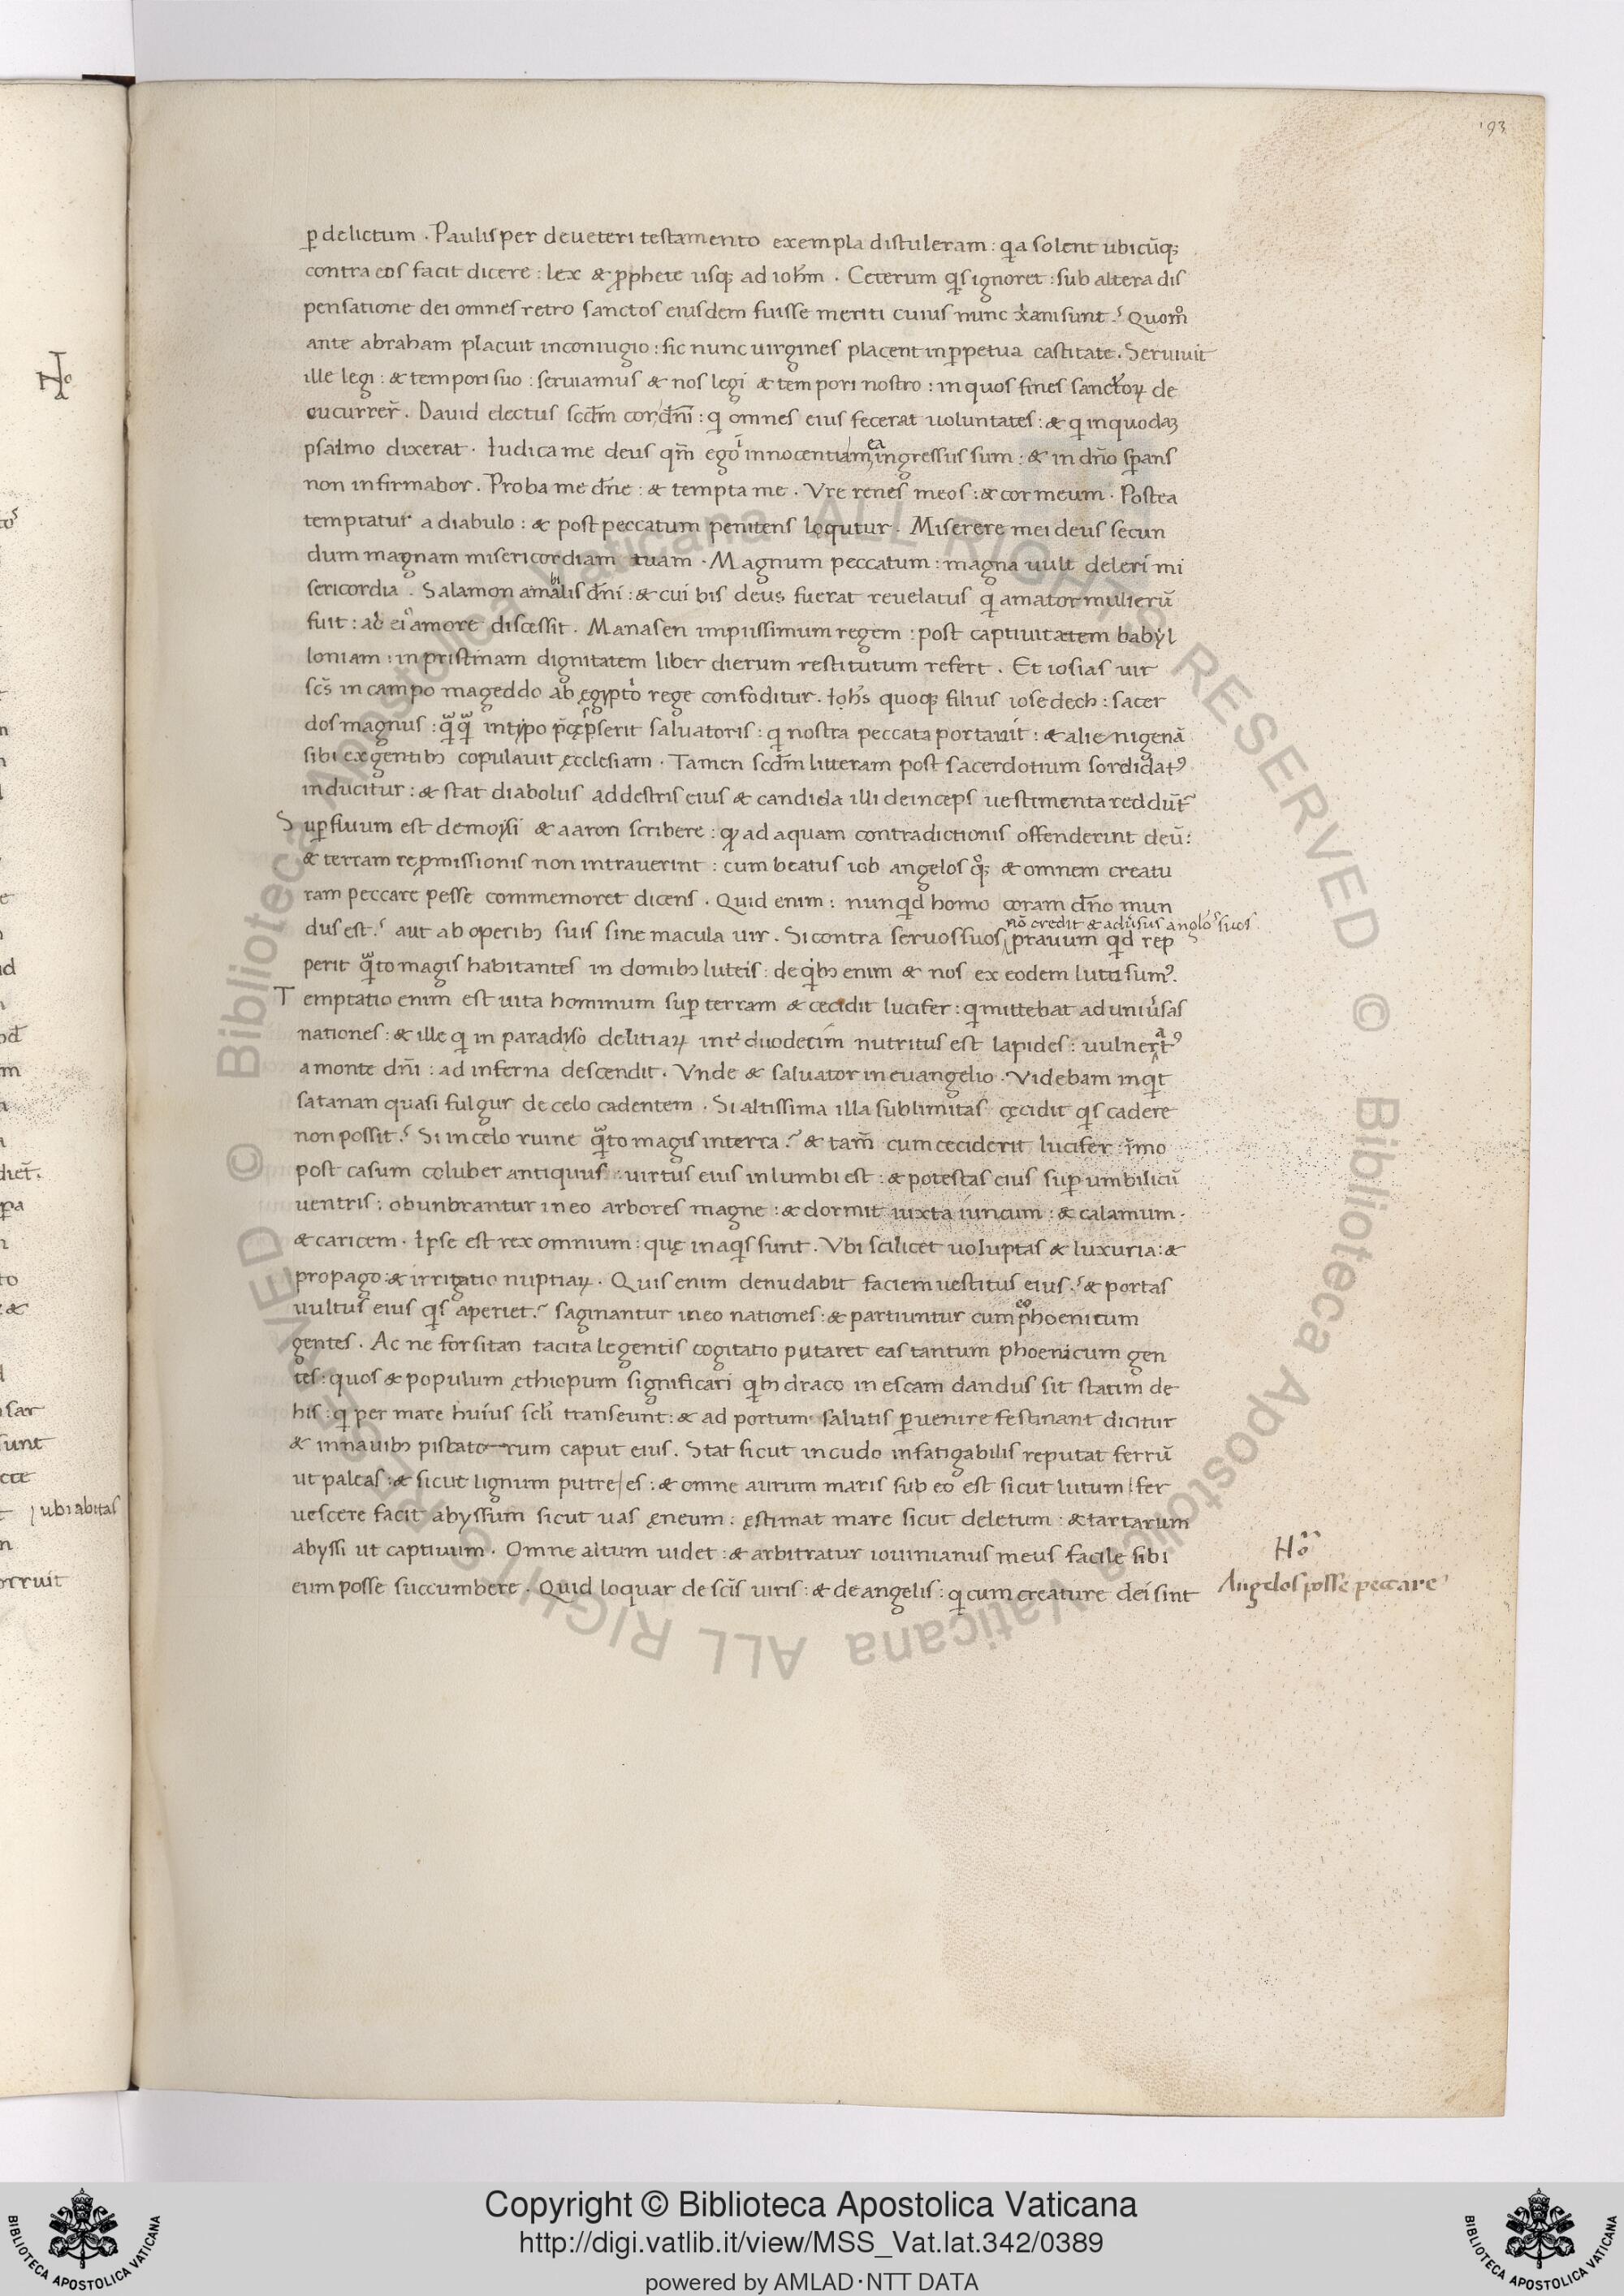 193
ꝑ delictum . Paulisper de ueteri testamento exempla distuleram : qa solent ubicūqꝫ
contra eos facit dicere : lex & ꝓphete usqꝫ ad ioh̄m . Ceterum qs ignoret : sub altera dis
pensatione dei omnes retro sanctos eiusdem fuisse meriti cuius nunc xani sunt ? Quomo
ante abraham placuit in coniugio : sic nunc uirgines placent in ꝑpetua castitate . Seruiuit
ille legi : & tempori suo : seruiamus & nos legi & tempori nostro : in quos fines sanctoꝝ de
cucurrer̄ . Dauid electus scd̄m cor dn̄i : q omnes eius fecerat uoluntates : & q in quodaꝫ
psalmo dixerat . Iudica me deus qm̄ ego i innocentiam ea ingressus sum : & in dn̄o sꝑans
non infirmabor . Proba me dn̄e : & tempta me . Vre renes meos : & cor meum . Postea
temptatur a diabulo : & post peccatum penitens loqutur . Miserere mei deus secun
dum magnam misericordiam tuam . Magnum peccatum : magna uult deleri mi
sericordia . Salamon amabilis dn̄i : & cui bis deus fuerat reuelatus q amator mulierū
fuit : ab ei amore discessit . Manasen impiissimum regem : post captiuitatem babyl
loniam : in pristinam dignitatem liber dierum restitutum refert . Et iosias uir
sc̄s in campo mageddo ab egypto rege confoditur . Ioh̄s quoqꝫ filius iosedech : sacer
dos magnus : qq in tipo p̄cęsserit saluatoris : q nostra peccata portauit : & alienigenā
sibi ex gentibꝫ copulauit ęcclesiam . Tamen scd̄m litteram post sacerdotium sordidatꝰ
inducitur : & stat diabolus addestris eius & candida illi deinceps uestimenta reddūt
Suꝑfluum est de moysi & aaron scribere : qꝫ ad aquam contradictionis offenderint deū :
& terram reꝓmissionis non intrauerint : cum beatus iob angelos qqꝫ & omnem creatu
ram peccare pesse commemoret dicens . Quid enim : nunqd homo coram dn̄o mun
nō credit & aduersus anglos suos
dus est ? aut ab operibꝫ suis sine macula uir . Si contra seruos suos prauum qd rep
perit qto magis habitantes in domibꝫ luteis : de qibꝫ enim & nos ex eodem luto sumꝰ .
Temptatio enim est uita hominum suꝑ terram & cecidit lucifer : q mittebat ad uniuersas
nationes : & ille q in paradyso delitiaꝝ int duodecim nutritus est lapides : uulneratꝰ
a monte dn̄i : ad inferna descendit . Vnde & saluator in euangelio . Videbam inqt
satanan quasi fulgur de celo cadentem . Si altissima illa sublimitas cęcidit qs cadere
non possit ? Si in celo ruine qto magis in terra ? & tam̄ cum ceciderit lucifer : īmo
post casum coluber antiquus : uirtus eius in lumbi est : & potestas eius suꝑ umbilicū
uentris : obunbrantur in eo arbores magne : & dormit iuxta iuncum : & calamum .
& caricem . Ipse est rex omnium : quę in aqs sunt . Vbi scilicet uoluptas & luxuria : &
propago : & irrigatio nuptiaꝝ . Quis enim denudabit faciem uestitus eius ? & portas
uultus eius qs aperiet ? saginantur in eo nationes : & partiuntur cum eo phoenicum
gentes . Ac ne forsitan tacita legentis cogitatio putaret eas tantum phoenicum gen
tes : quos & populum ęthiopum significari qibꝫ draco in escam dandus sit statim de
his : q per mare huius scl̄i transeunt : & ad portum salutis ꝑuenire festinant dicitur
& in nauibꝫ piscatorum caput eius . Stat sicut incudo infatigabilis reputat ferrū
ut paleas : & sicut lignum putre es : & omne aurum maris sub eo est sicut lutum fer
uescere facit abyssum sicut uas ęneum : ęstimat mare sicut deletum : & tartarum
abyssi ut captiuum . Omne altum uidet : & arbitratur iouinianus meus facile sibi
eum posse succumbere . Quid loquar de sc̄is uiris : & de angelis : q cum creature dei sint
Angelos posse peccare
ubi abitas
Copyright © Biblioteca Apostolica Vaticana
http://digi.vatlib.it/view/MSS_Vat.lat.342/0389
powered by AMLAD·NTT DATA
BIBLIOTECA APOSTOLICA VATICANA
BIBLIOTECA APOSTOLICA VATICANA
© Biblioteca Apostolica Vaticana ALL RIGHTS RESERVED © Biblioteca Apostolica Vaticana ALL RIGHTS RESERVED